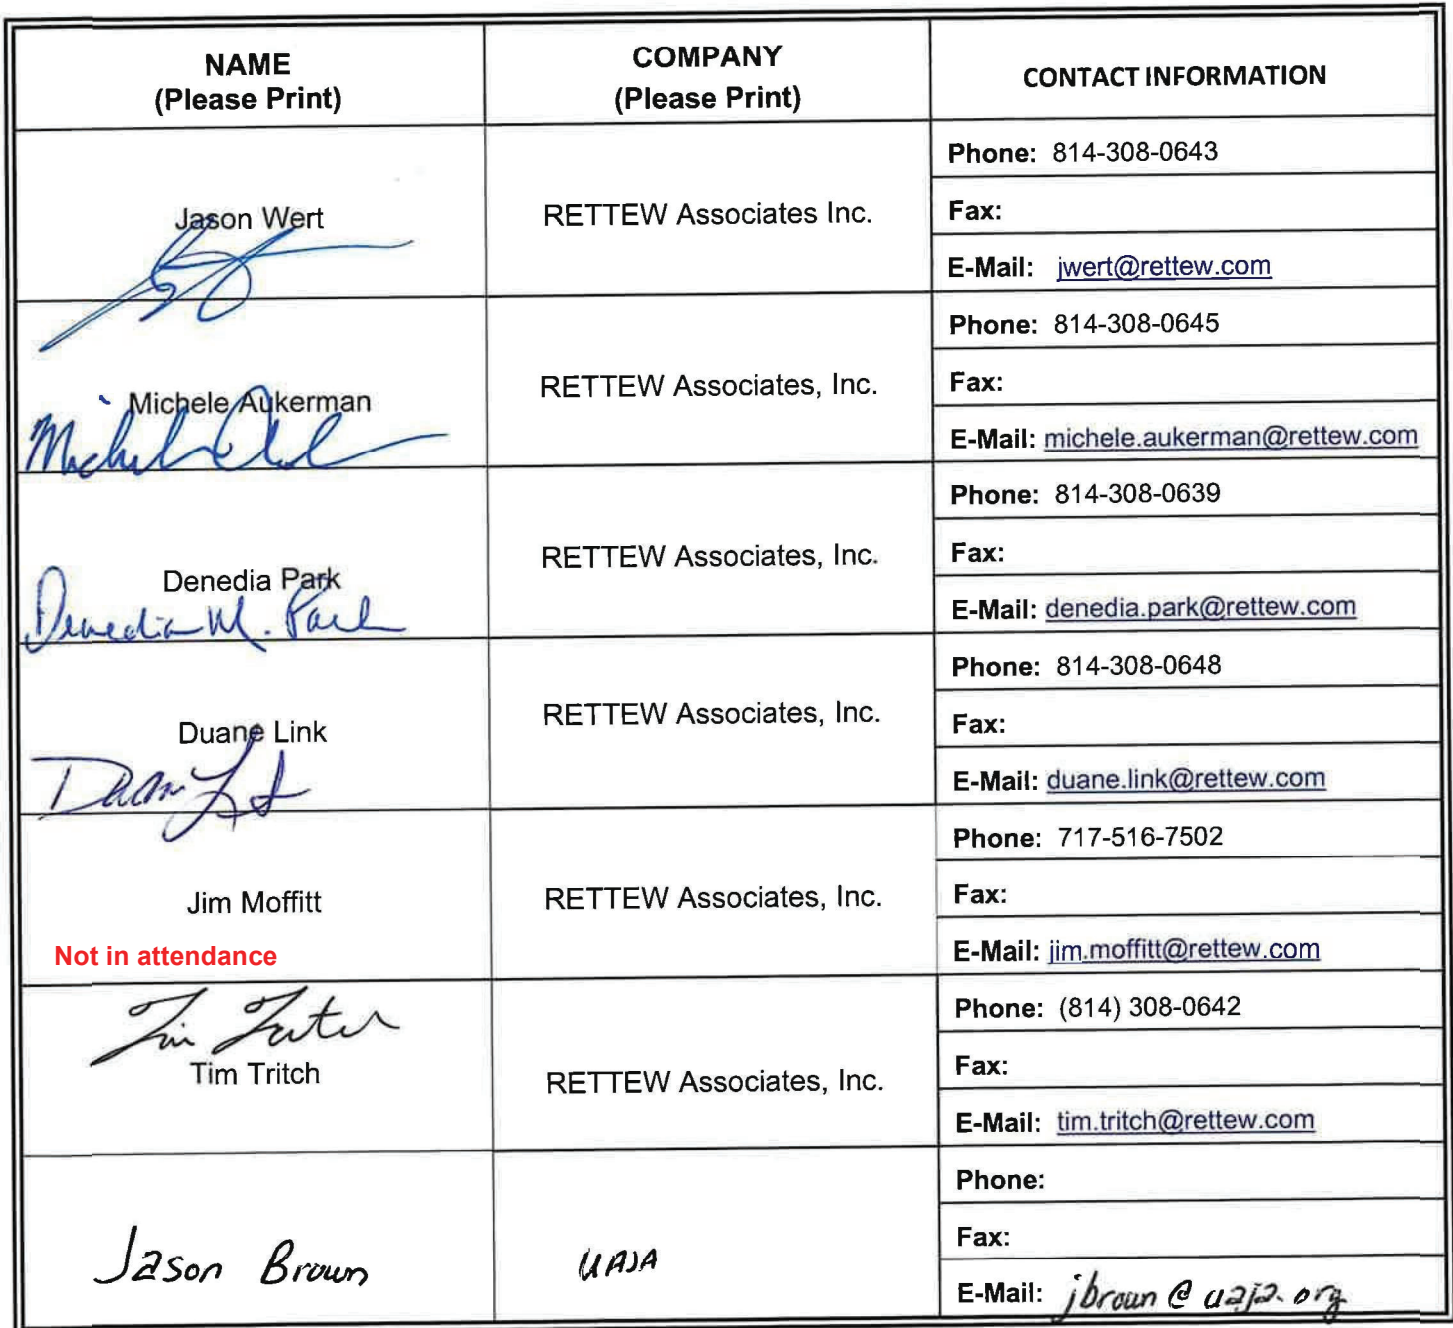 NAME
(Please Print)
COMPANY
(Please Print)
CONTACT INFORMATION
Jason Wert
RETTEW Associates Inc.
Phone: 814-308-0643
Fax:
E-Mail: jwert@rettew.com
Michele Aukerman
RETTEW Associates, Inc.
Phone: 814-308-0645
Fax:
E-Mail: michele.aukerman@rettew.com
Denedia Park
Denedia M. Park
RETTEW Associates, Inc.
Phone: 814-308-0639
Fax:
E-Mail: denedia.park@rettew.com
Duane Link
RETTEW Associates, Inc.
Phone: 814-308-0648
Fax:
E-Mail: duane.link@rettew.com
Jim Moffitt
Not in attendance
RETTEW Associates, Inc.
Phone: 717-516-7502
Fax:
E-Mail: jim.moffitt@rettew.com
Tim Tritch
RETTEW Associates, Inc.
Phone: (814) 308-0642
Fax:
E-Mail: tim.tritch@rettew.com
Jason Brown
UAJA
Phone:
Fax:
E-Mail: jbrown@uaja.org